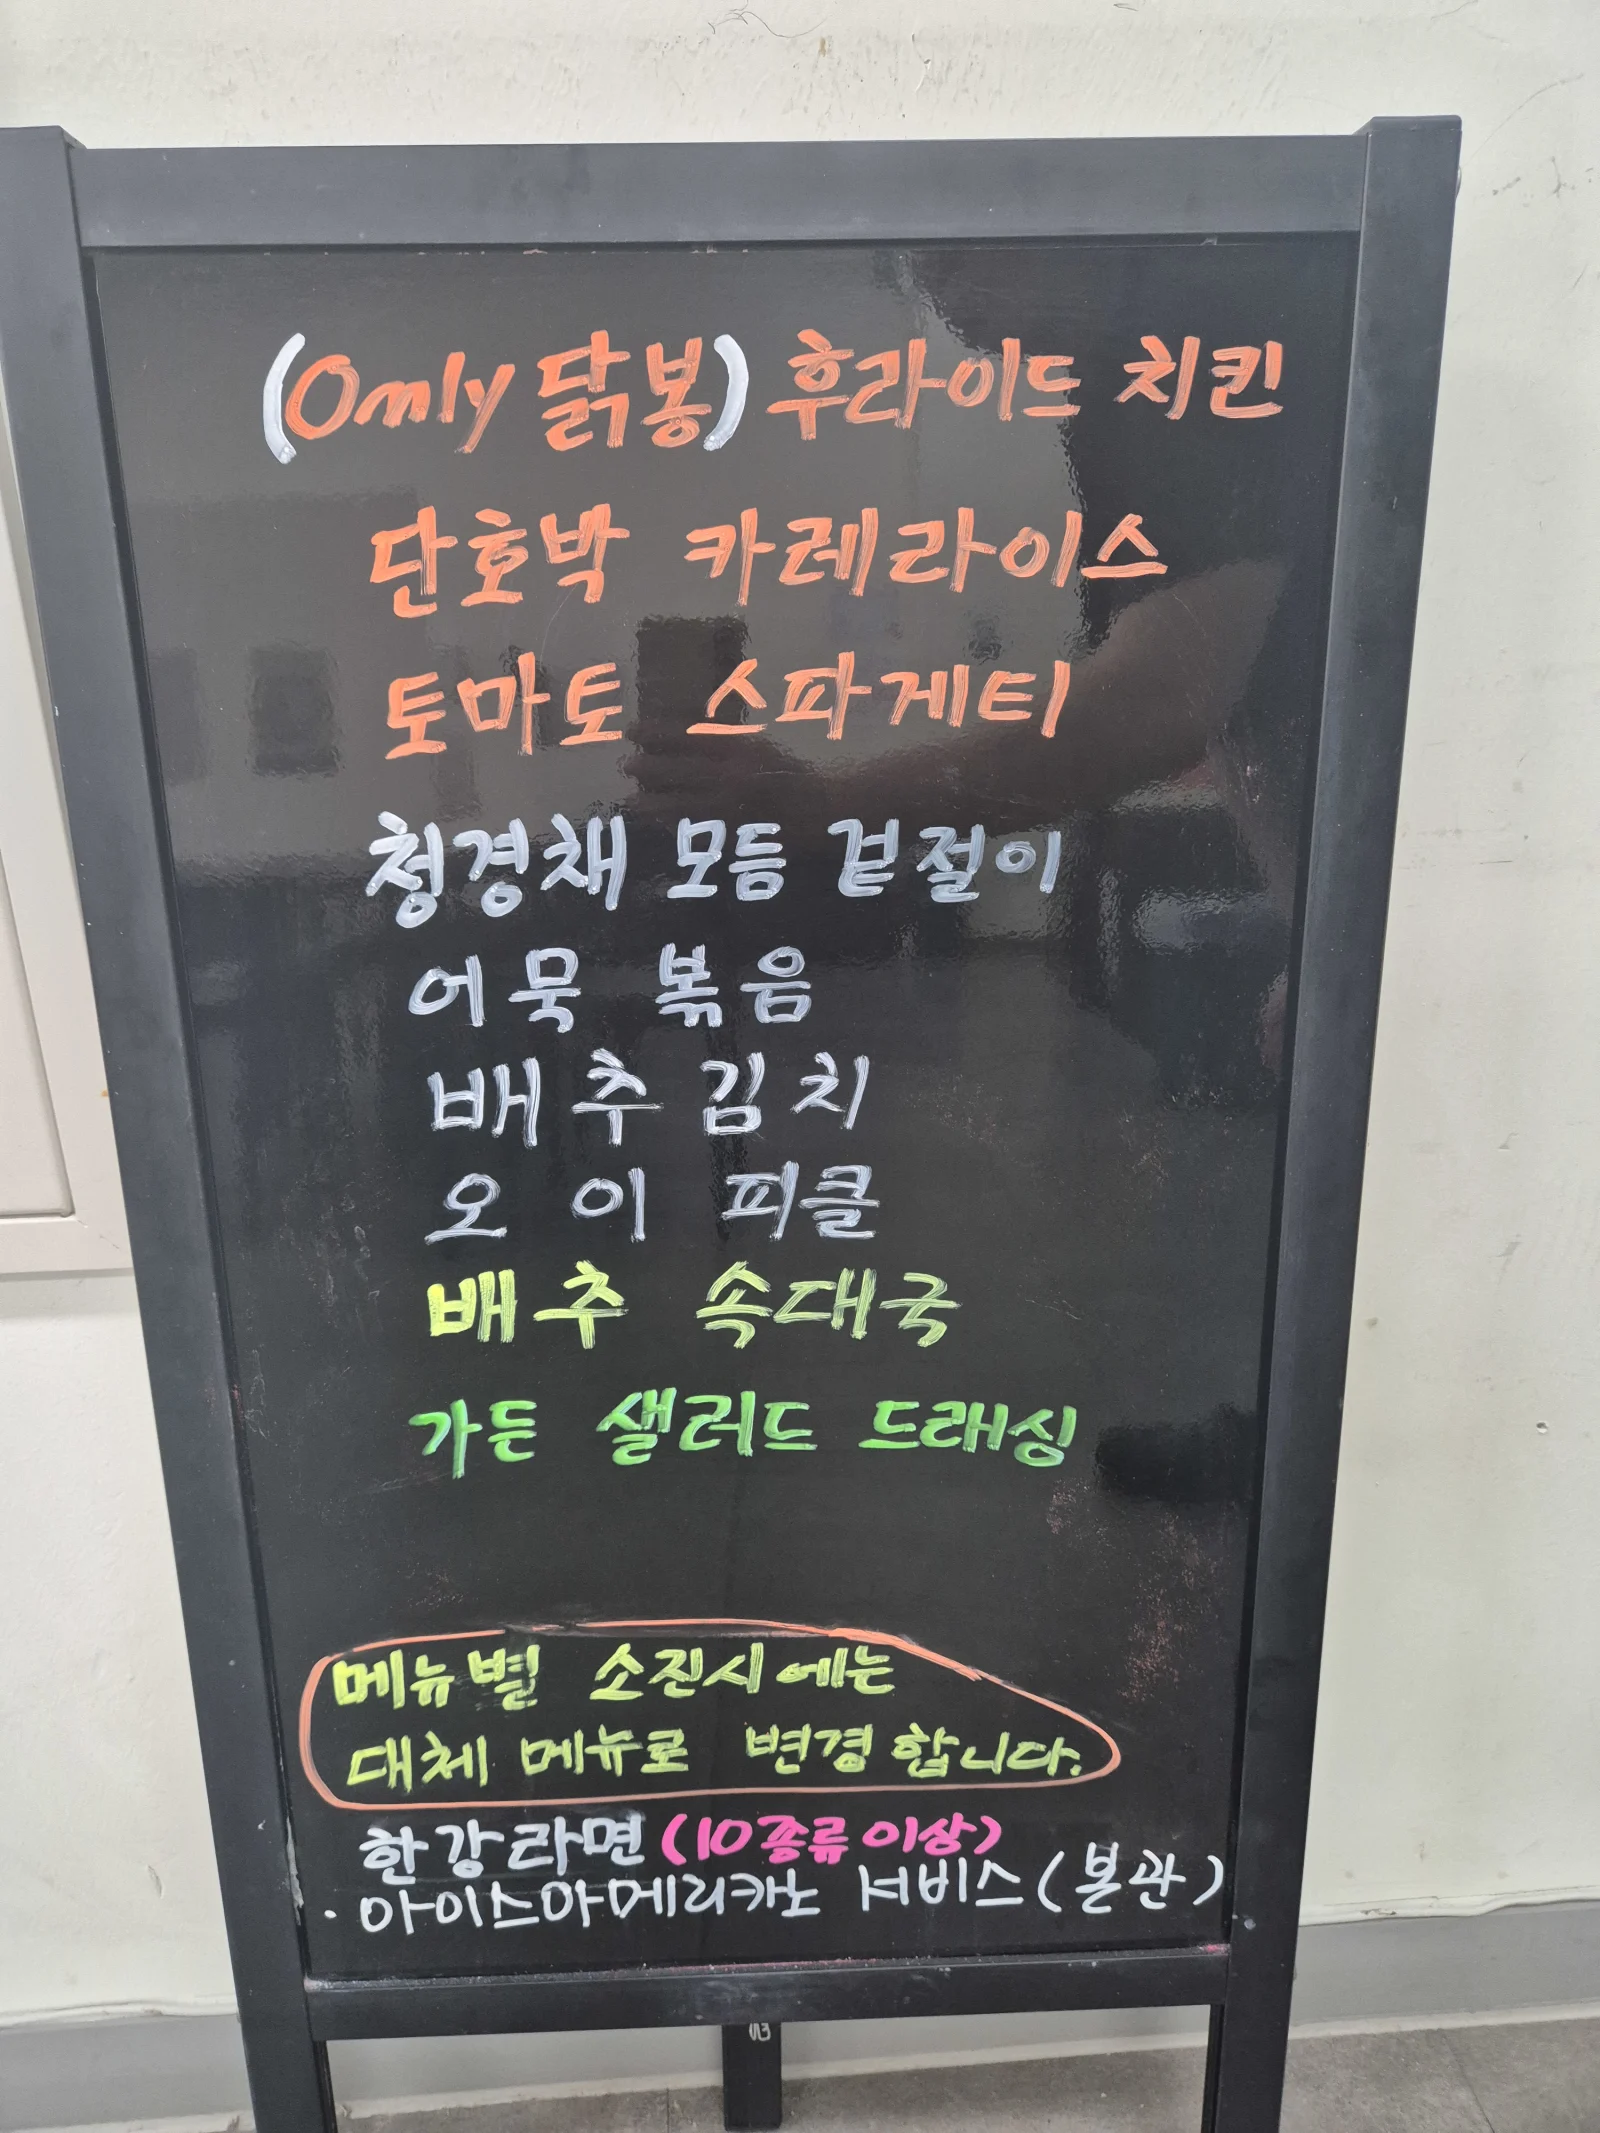 (Only 닭봉) 후라이드 치킨
단호박 카레라이스
토마토 스파게티
청경채 모듬 겉절이
어묵 볶음
배추김치
오이 피클
배추 속대국
가든 샐러드 드래싱
메뉴별 소진시에는
대체 메뉴로 변경합니다.
한강라면 (10종류 이상)
· 아이스아메리카노 서비스 (본관)